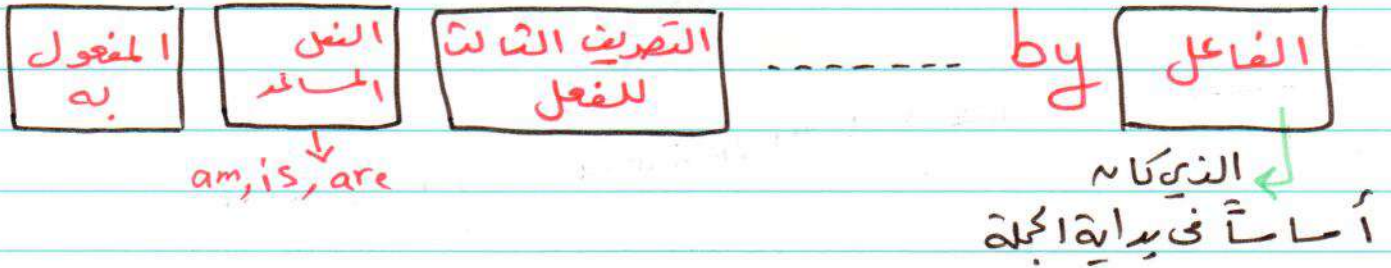 المفعول به
الفعل المساعد
التصريف الثالث للفعل
------- by
الفاعل
am, is, are
الذي كان
أساساً في بداية الجملة